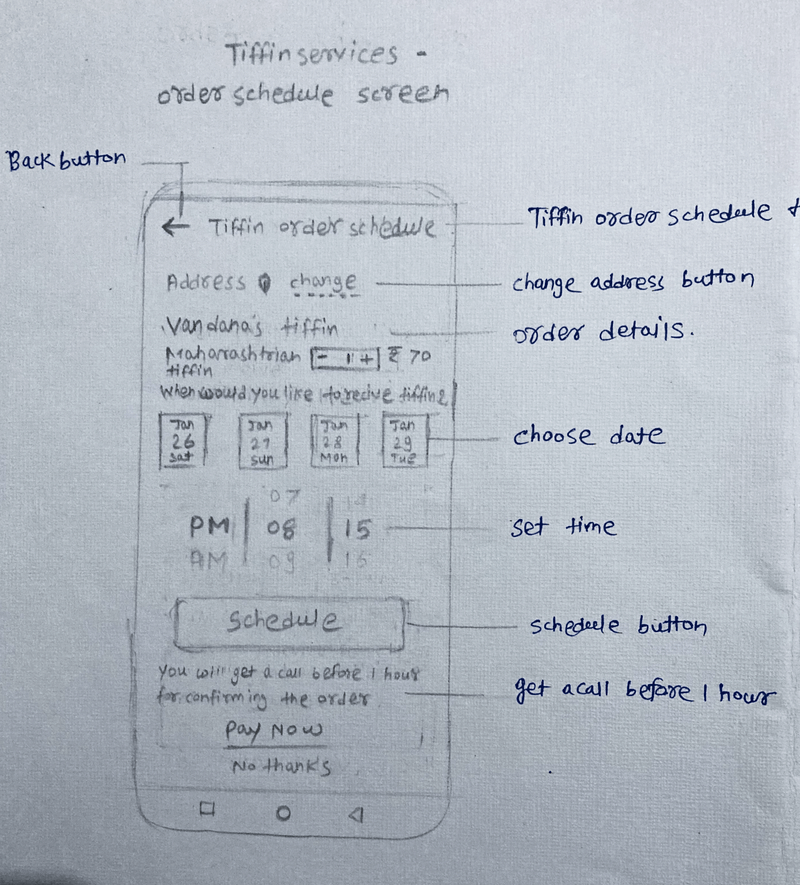 Tiffin services -
order schedule screen
Back button
← Tiffin order schedule
Tiffin order schedule
Address change
change address button
Vandana's tiffin
order details.
Maharashtrian - 1 + ₹ 70
tiffin
When would you like to recive tiffin?
Jan Jan Jan Jan
26 27 28 29
Sat Sun Mon Tue
choose date
07 14
PM 08 15
AM 09 16
set time
Schedule
schedule button
You will get a call before 1 hour
for confirming the order
get a call before 1 hour
Pay Now
No thanks